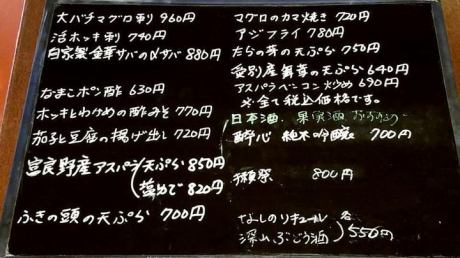 大バチマグロ刺 960円
活ホッキ刺 740円
自家製金華サバの〆サバ 880円
なまこポン酢 630円
ホッキとわけめの酢みそ 770円
茄子と豆腐の揚げ出し 720円
富良野産アスパラ 天ぷら 850円
塩ゆで 820円
ふきの頭の天ぷら 700円
マグロのカマ焼き 720円
アジフライ 780円
たらの芽の天ぷら 750円
愛別産舞茸の天ぷら 640円
アスパラベーコン炒め 690円
※全て税込価格です。
日本酒、果実酒
酔心 純米吟醸 700円
獺祭 800円
なしのリキュール 各
深山ぶどう酒 550円